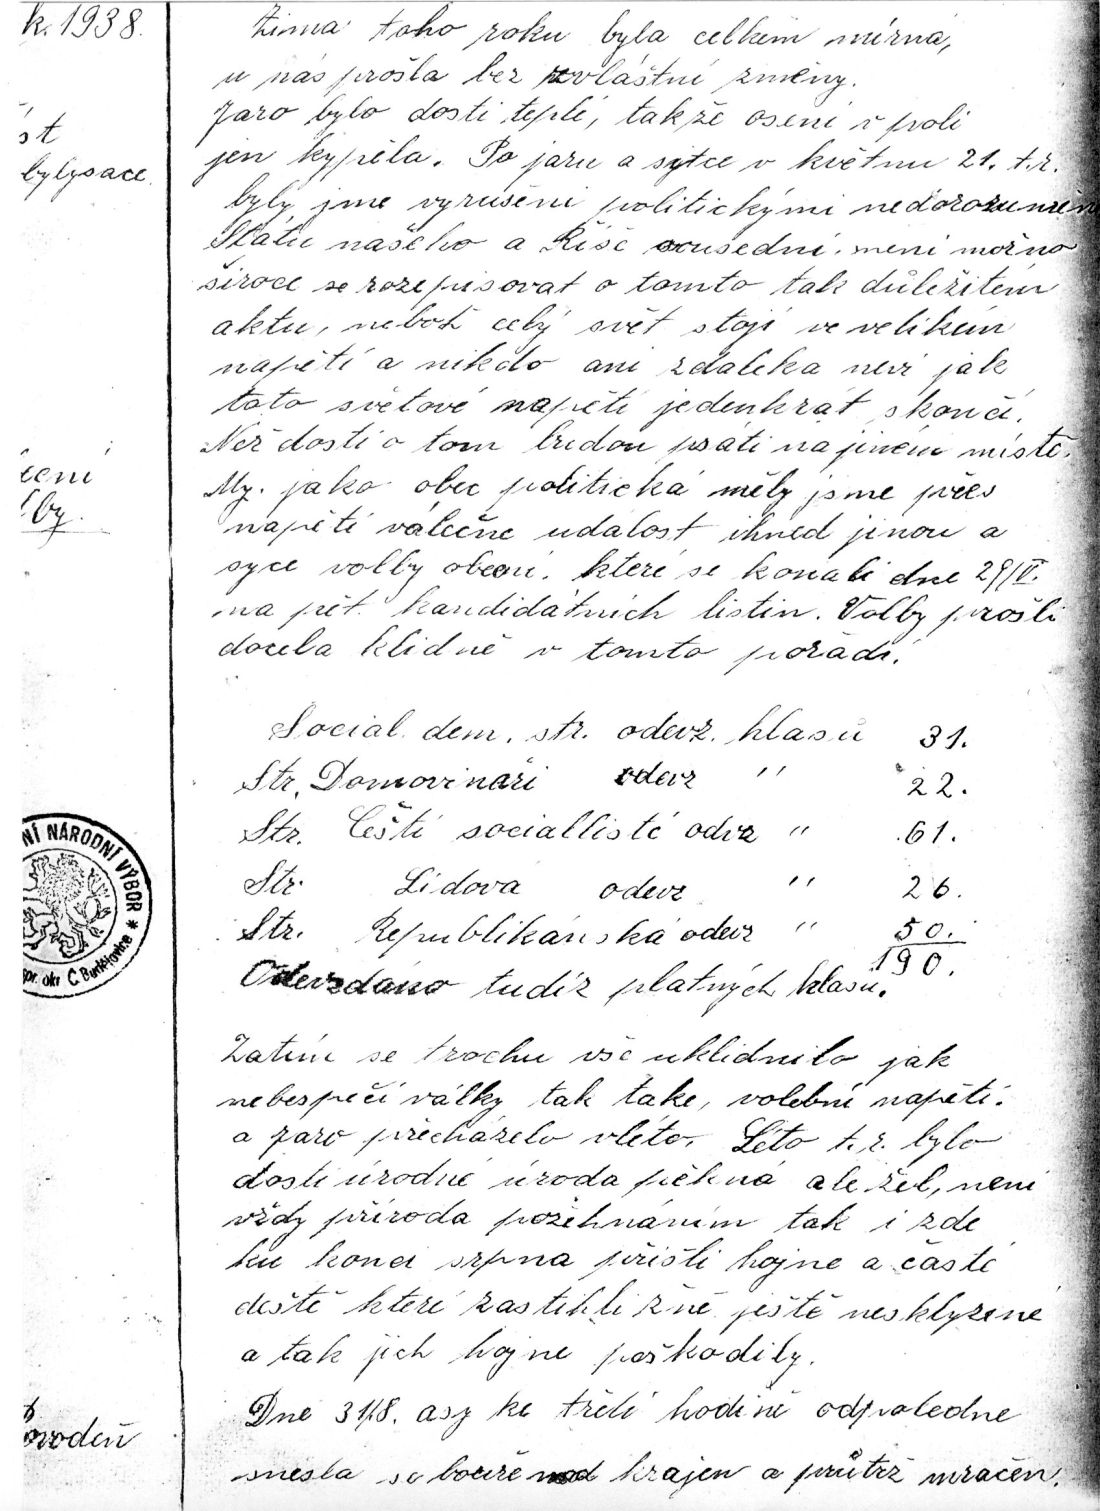 k. 1938.
st
bylysace.
cení
lby.
Zima toho roku byla celkem mírná,
u nás prošla bez zvláštní změny.
Jaro bylo dosti teplé, takže osení v poli
jen kypěla. Po jaru a sytce v květnu 21. t.r.
byly jme vyrušeni politickými nedorozumění
Státu našeho a Říše sousední. není možno
široce se rozepisovat o tomto tak důležitém
aktu, neboť celý svět stojí ve velikém
napětí a nikdo ani zdaleka neví jak
toto světové napětí jedenkrát skončí.
Než dosti o tom budou psáti na jiném místě.
My. jako obec politická měly jsme přes
napětí válečné událost ihned jinou a
syce volby obecní. které se konali dne 29/V.
na pět kandidátních listin. Volby prošli
docela klidně v tomto pořadí.
Social. dem. str. odevz. hlasů 31.
Str. Domovináři odevz " 22.
Str. Čeští sociallisté odvz " 61.
Str. Lidova odevz " 26.
Str. Republikánská odevz " 50.
190.
Odevzdáno tudíz platných hlasů.
Zatím se trochu vše uklidnilo jak
nebezpečí války tak take, volební napětí.
a jaro přecházelo vléto. Léto t.r. bylo
dosti úrodné úroda pěkná ale žel, není
vždy příroda požehnáním tak i zde
ku konci srpna přišli hojne a časté
deště které zastihli žně ještě nesklyzené
a tak jich hojne poškodily.
Dne 31/8. asy ke třetí hodině odpoledne
snesla se bouře nad krajen a průtrž mračen.
NÍ NÁRODNÍ VÝBOR *
spr. okr. Č. Budějovice
ovodeň